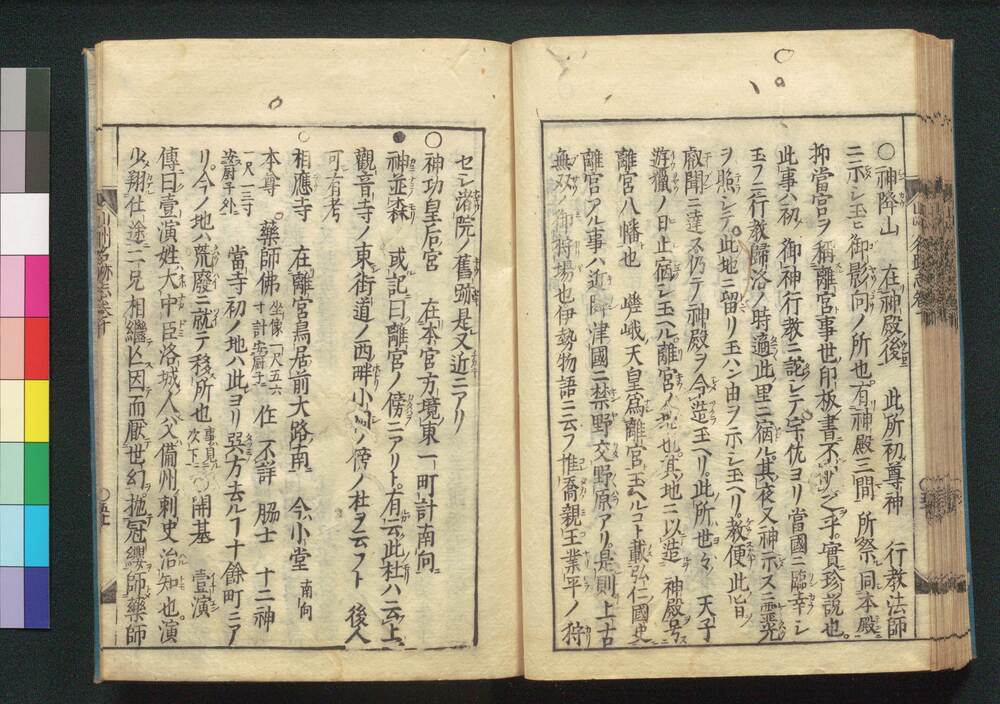 〇神降山　在神殿後　此所初尊神　行教法師
ニ示シ玉ヒ御影向ノ所也有神殿三間　所祭同本殿
抑當宮ヲ稱離宮事世印板書不少乎實珍説也
此事ハ初　御神行教ニ託シテ宇佐ヨリ當國ニ臨幸シ
玉フニ行教歸洛ノ時適此里ニ宿ル其夜又神示ス霊光
ヲ照シテ此地ニ留リ玉ハン由ヲ示シ玉ヘリ教便此旨ヲ
叡聞ニ達ス仍テ神殿ヲ令造玉ヘリ此所世々　天子
遊獵ノ日止宿シ玉ヘル離宮ノ地也其地ニ以造　神殿号
離宮八幡也　嵯峨天皇爲離宮玉ヘルコト載弘仁國史
離宮アル事ハ近隣津國ニ禁野交野原アリ是則上古
無双ノ御狩場也伊勢物語ニ云フ惟喬親王業平ノ狩
セシ渚院ノ舊跡是又近ニアリ
〇神功皇后宮　在本宮方境東一町計南向
●神並森　或記曰離宮ノ傍ニアリト有云此杜ハ云上
觀音寺ノ東街道ノ西畔小ノ傍ノ杜ヲ云フト　後人
可有考
〇相應寺　在離宮鳥居前大路南　今小堂南向
本尊　藥師佛坐像一尺五六寸計安厨子　作不詳　脇士　十二神
一尺二三寸安厨子外　當寺初ノ地ハ此ヨリ巽方去ルフ十餘町ニア
リ今ノ地ハ荒廢ニ就テ移所也事見次下　〇開基　壹演
傳曰壹演姓大中臣洛城ノ人父備州刺史治知也演
少翔仕途ニ二兄相繼亡因而厭世幻抛冠纓師藥師
山州名跡志卷十